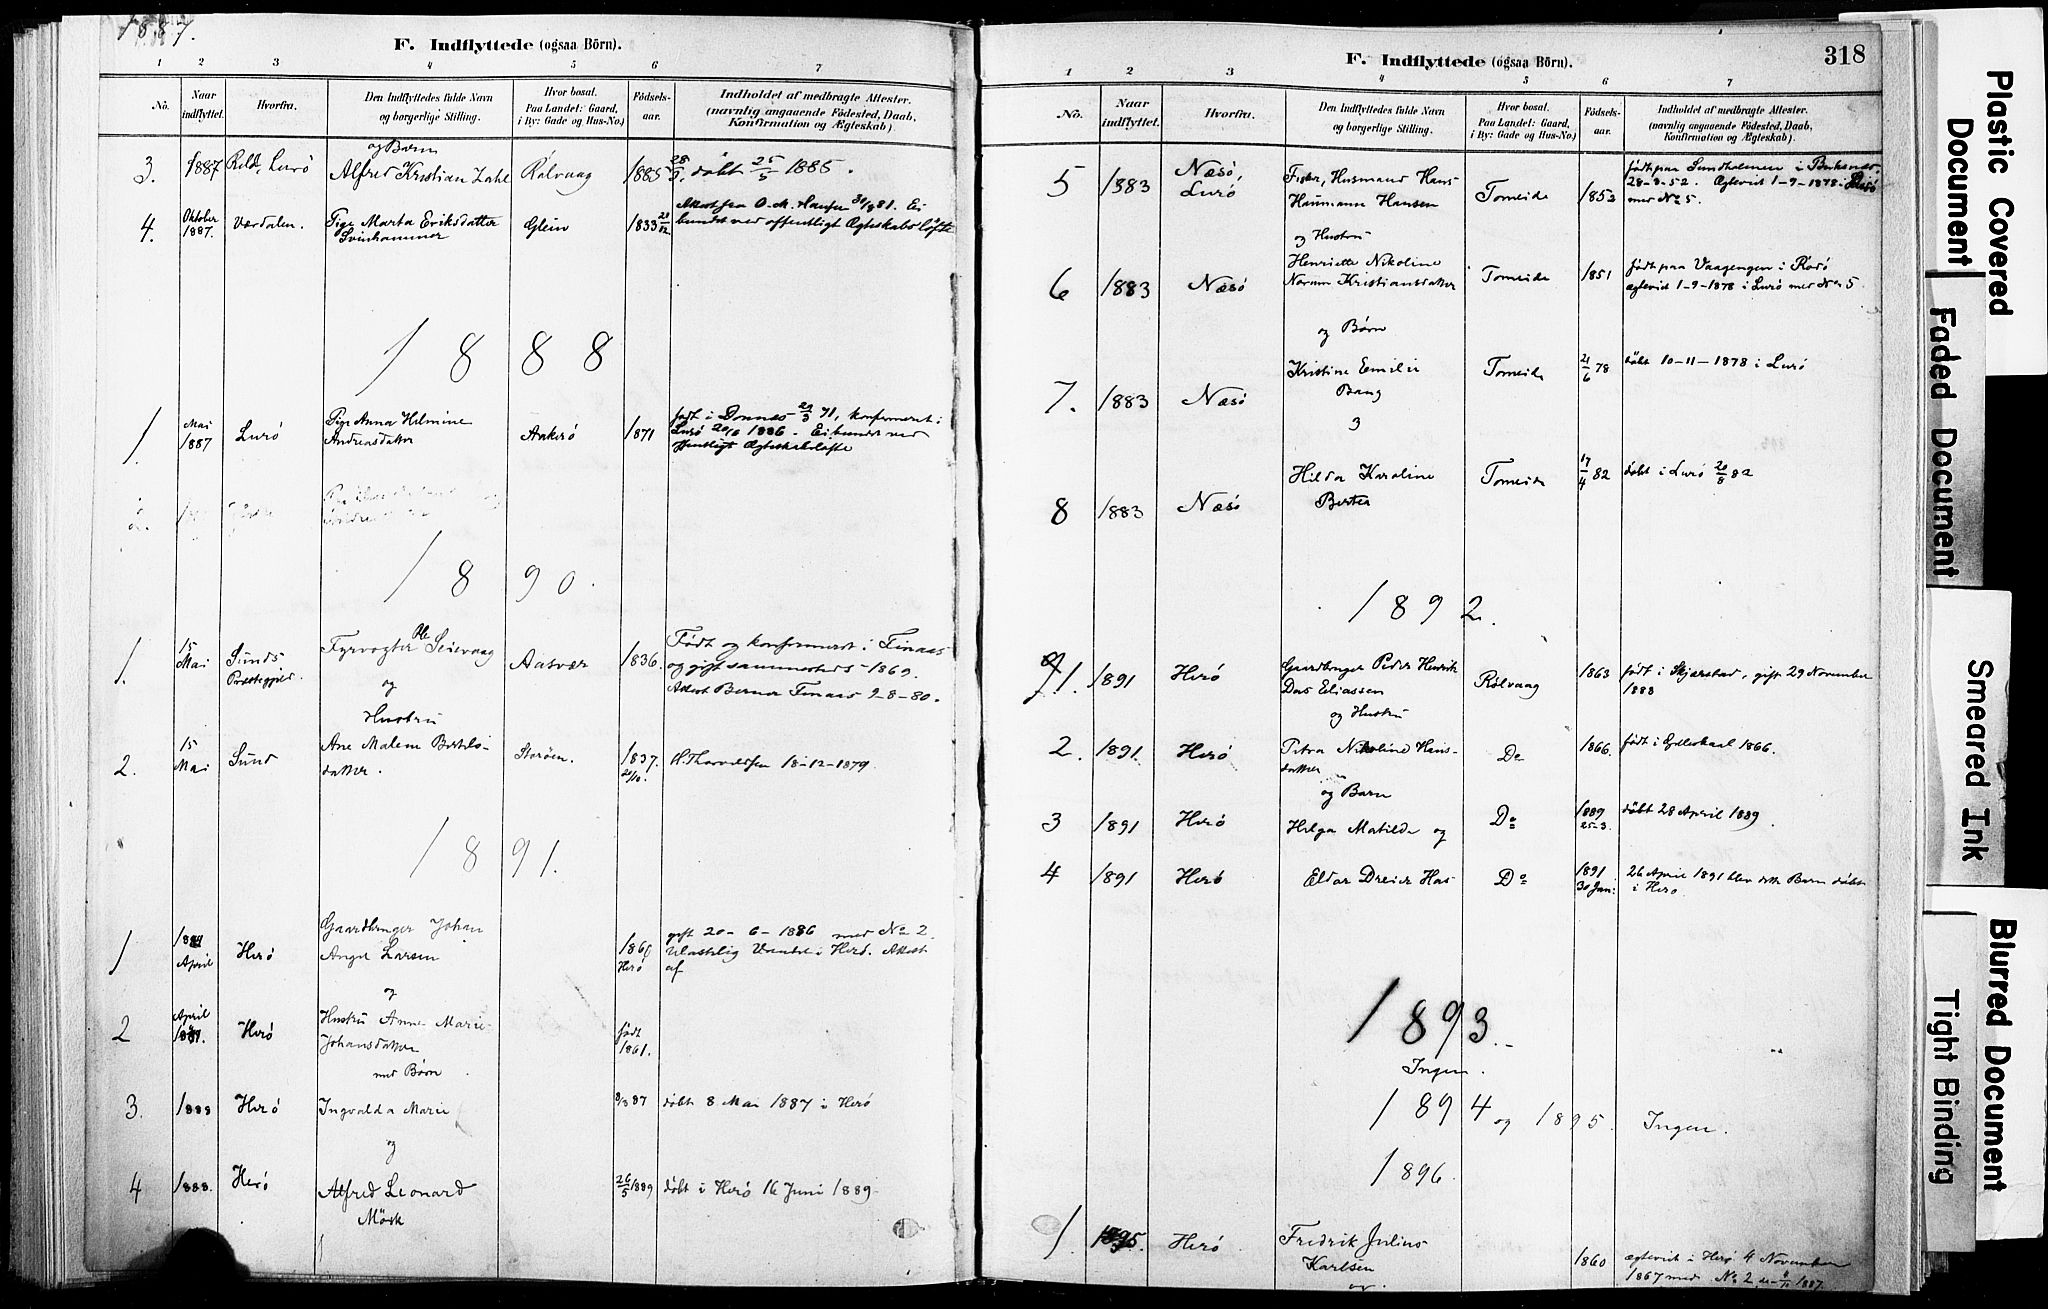 1887.
F. Indflyttede (ogsaa Börn).
1 2 3 4 5 6 7
No. Naar indflyttet. Hvorfra. Den Indflyttedes fulde Navn og borgerlige Stilling. Hvor bosat. Paa Landet: Gaard, i By: Gade og Hus-No.) Födsels-aar. Indholdet af medbragte Attester. (navnlig angaaende Födested, Daab, Konfirmation og Ægteskab).
og Barn
3. 1887 Lurö Alfred Kristian Zahl Rölvaag 1885 döbt 25/5 1885.
4. Oktober 1887. Værdalen. Pige Marta Eriksdatter Svinhammer Glein 1833 Attest fra O. M. Hansen 81. Ei
bundet ved offentligt Ægteskabslöfte
1888
1. Mai 1887 Lurö Pige Anna Helmine Andreasdatter Aakerö 1871 født i Dönnes 29/3 71, konfirmeret i
Lurö 1886. Ei bundet ved
offentligt Ægteskabslöfte
1890.
1. 15 Mai Sunds Præstegjæld. Fyrvogter Ole Seievaag Aasvær 1836. Født og konfirmeret i Finaas
og
og gift sammesteds 1869.
Attest Berner Finaas 9-8-80.
Hustru
2. 15 Mai Sund Ane Malene Bertels-
datter. Storöen. 1837. H. Thorvaldsen 18-12-1879.
1891.
1 April Herö Gaardbruger Johan
Larsen 1860 Herö gift 20-6-1886 med No 2
Attest
af
og
2 April Herö Hustru Anne Marie
Johansdatter født 1861.
med Börn
3. 1888 Herö Ingvalda Marie 87 döbt 8 Mai 1887 i Herö
og
4 1888. Herö Alfred Leonard
Mörk 26/5 1889 döbt i Herö 16 Juni 1889.
F. Indflyttede (ogsaa Börn).
318
1 2 3 4 5 6 7
No. Naar indflyttet. Hvorfra. Den Indflyttedes fulde Navn og borgerlige Stilling. Hvor bosat. Paa Landet: Gaard, i By: Gade og Hus-No.) Födsels-aar. Indholdet af medbragte Attester. (navnlig angaaende Födested, Daab, Konfirmation og Ægteskab).
5 1883 Næsö, Lurö Husmand Hans
Hansen Tomeide 1852 født paa Sundholmen i Buksnes
28-3-52. Ægteviet 1-9-1878
med No 5.
og Hustru
6 1883 Næsö Henriette Nikoline
Kristiansdatter Tomeide 1851 født paa Vaagengen i Rödö
ægteviet 1-9-1878 i Lurö med No 5.
og Börn
7. 1883 Næsö Kristine Emilie
Bang Tomeide 21/6 78 döbt 10-11-1878 i Lurö
8 1883 Næsö Hilda Karoline
Berter Tomeide 17/4 82 döbt i Lurö 20/8 82
1892.
1. 1891 Herö Gaardbruger Peder Henrik
Das Eliassen Rölvaag 1863 født i Skjærstad, gift 29 November
1888
og Hustru
2. 1891. Herö Petra Nikoline Hans-
datter Do 1866. født i Gilleskaal 1866.
og Barn
3 1891 Herö Helga Matilde og Do 1889 25-3. döbt 28 April 1889.
4 1891 Herö Eldar Dreier Has Do 1891 30 Jan: 26 April 1891 blev dette Barn döbt
i Herö
1893.
Ingen.
1894 og 1895. Ingen.
1896.
1. 1895. Herö Fredrik Julius
Karlsen 1860 ægteviet i Herö 4 November
1867 med No 2 1887.
og
Plastic Covered Document
Faded Document
Smeared Ink
Blurred Document
Tight Binding